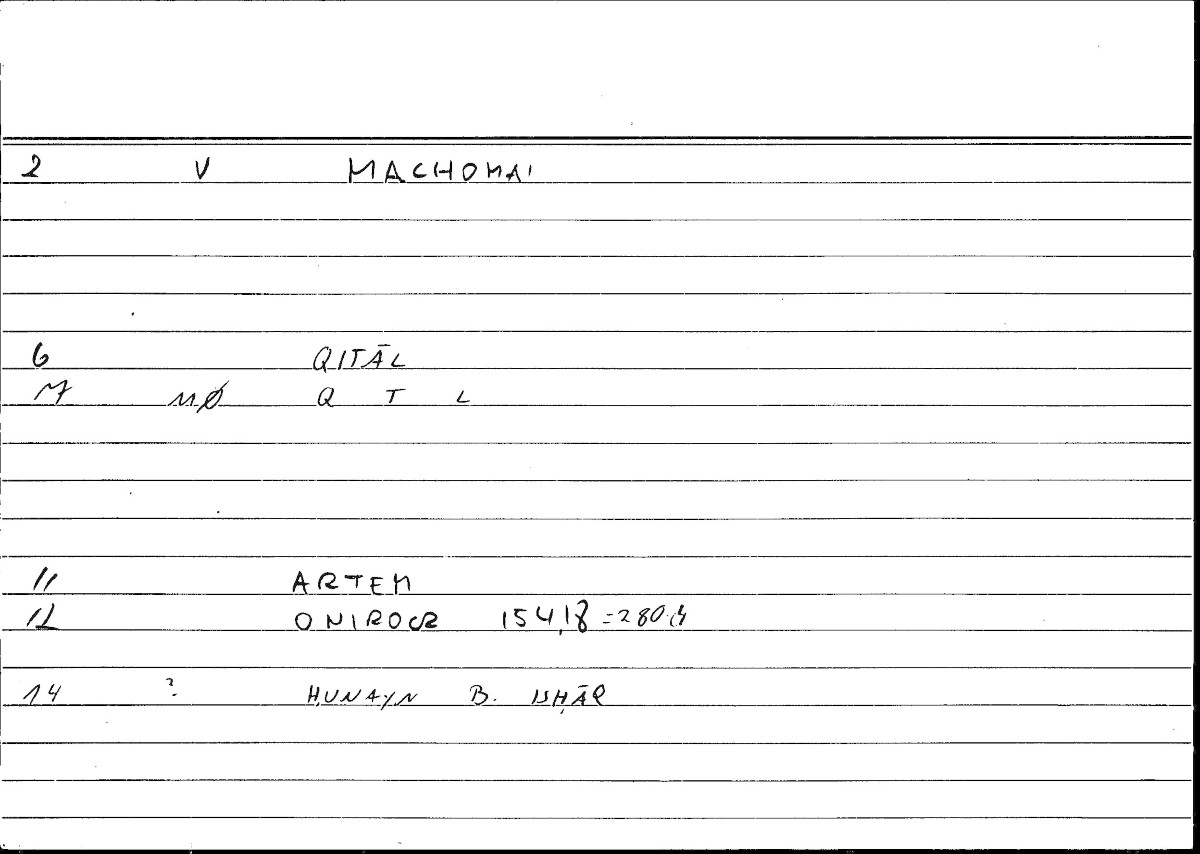 2 V MACHOMAI
6 QITĀL
7 Q T L
11 ARTEM
12 ONIROCR 154,18 =280.4
14 ? ḤUNAYN B. ISḤĀQ